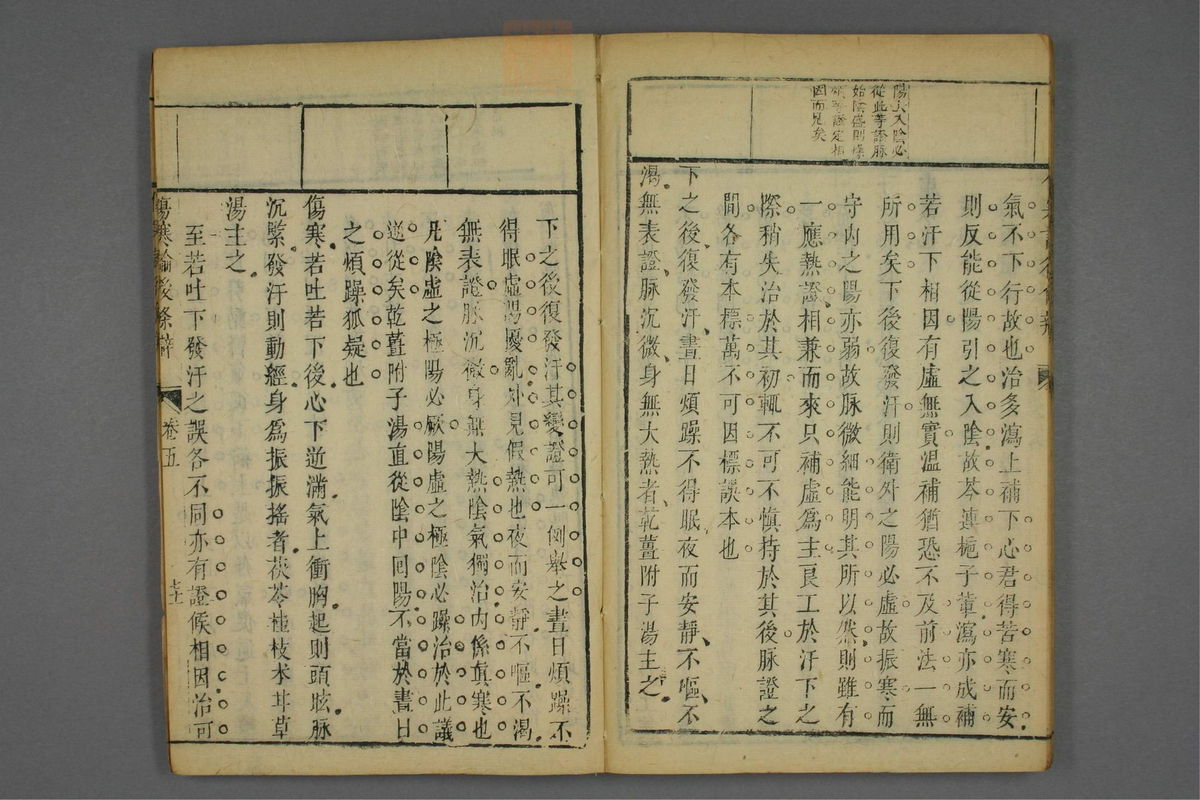 陽人入陰必
從此等證脉
始陰盛則燥
因而見矣
氣不下行故也治多瀉上補下心君得苦寒而安
則反能從陽引之入陰故芩連梔子輩瀉亦成補
若汗下相因有虛無實溫補猶恐不及前法一無
所用矣下後復發汗則衛外之陽必虛故振寒而
守内之陽亦弱故脉微細能明其所以然則雖有
一應熱證相兼而來只補虛爲主良工於汗下之
際稍失治於其初輒不可不慎持於其後脉證之
間各有本標萬不可因標誤本也
下之後復發汗晝日煩躁不得眠夜而安靜不嘔不
渴無表證脉沉微身無大熱者乾薑附子湯主之
下之後復發汗其變證可一例舉之晝日煩躁不
得眠虛陽擾亂外見假熱也夜而安靜不嘔不渴
無表證脉沉微身無大熱陰氣獨治内係眞寒也
凡陰虛之極陽必厥陽虛之極陰必躁治於此議
逆從矣乾薑附子湯直從陰中回陽不當於晝日
之煩躁狐疑也
傷寒若吐若下後心下逆滿氣上衝胸起則頭眩脉
沉緊發汗則動經身爲振振搖者茯苓桂枝术甘草
湯主之
至若吐下發汗之誤各不同亦有證候相因治可
傷寒論後條辯
卷五